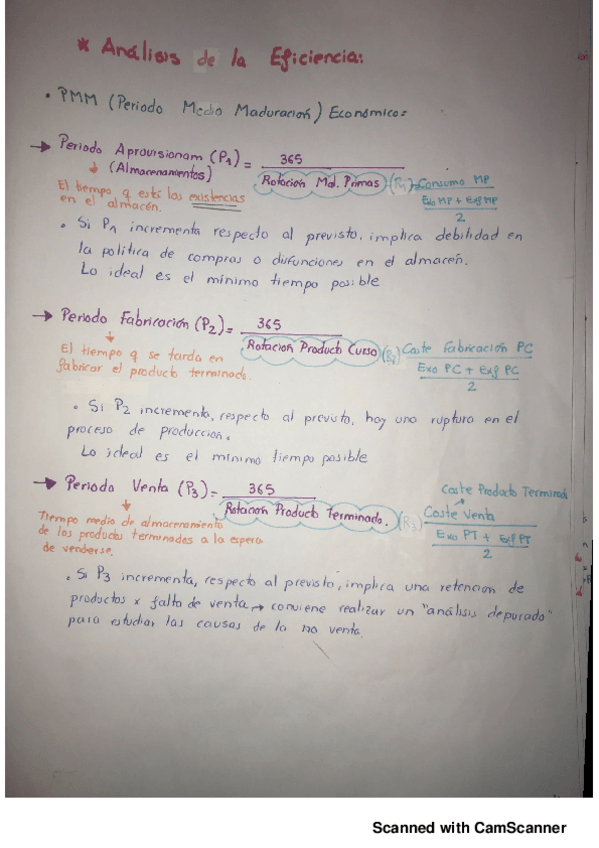 * Análisis de la Eficiencia:
• PMM (Periodo Medio Maduración) Económico:
→ Periodo Aprovisionam (P1) = 365
(Almacenamientos)
Rotación Mat. Primas (R1) = Consumo MP
Exo MP + Exf MP
2
El tiempo q está las existencias
en el almacén.
• Si P1 incrementa respecto al previsto, implica debilidad en
la política de compras o disfunciones en el almacén.
Lo ideal es el mínimo tiempo posible
→ Periodo Fabricación (P2) = 365
Rotación Producto Curso (R2) Coste Fabricación PC
Exo PC + Exf PC
2
El tiempo q se tarda en
fabricar el producto terminado.
• Si P2 incrementa, respecto al previsto, hay una ruptura en el
proceso de producción.
Lo ideal es el mínimo tiempo posible
→ Periodo Venta (P3) = 365
Rotación Producto Terminado. (R3)
Coste Producto Terminad
Coste Venta
Exo PT + Exf PT
2
Tiempo medio de almacenamiento
de los productos terminados a la espera
de venderse.
• Si P3 incrementa, respecto al previsto, implica una retención de
productos x falta de venta → conviene realizar un "análisis depurado"
para estudiar las causas de la no venta.
Scanned with CamScanner